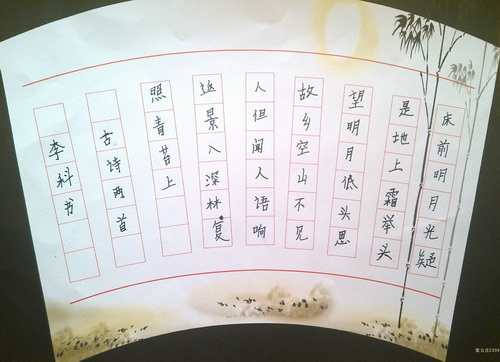 床前明月光疑
是地上霜举头
望明月低头思
故乡空山不见
人但闻人语响
返景入深林复
照青苔上
古诗两首
李科书